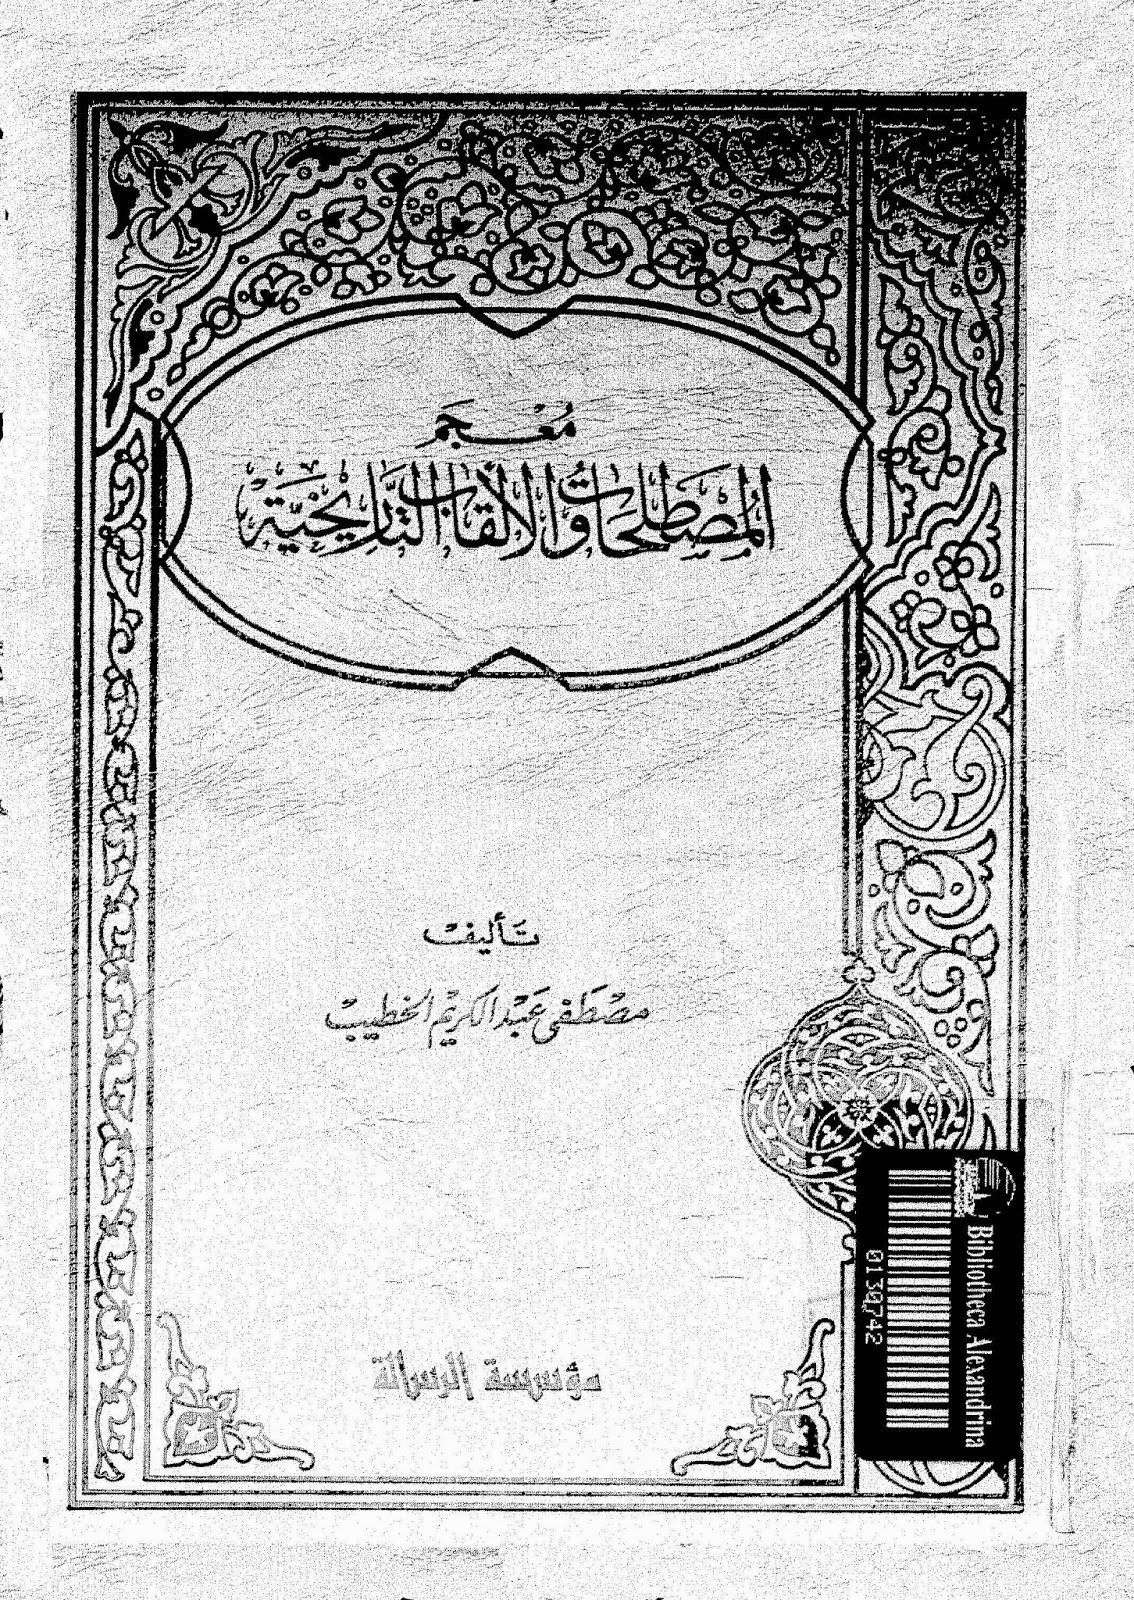 مُعْجَم
المُصْطَلَحَاتُ وَالأَلْقَابِ التَّارِيخِيَّة
تَأليف
مصْطَفى عَبْد الكريم الخطيب
مؤسسة الرسالة
Bibliotheca Alexandrina
0130742